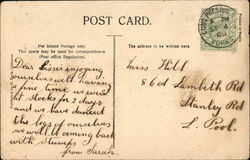 POST CARD.
For Inland Postage only,
this space may be used for correspondence
(Post office Regulation).
The address to be written here.
Dear Lissie enjoying
ourselves well having
a fine time we went
at Stocks for 2 days
and we have danced
the legs of ourselves
we will be coming back
with Stumps
from Sarah.
Miss Hill
86d Lambith Rd
Stanley Rd
L. Pool.